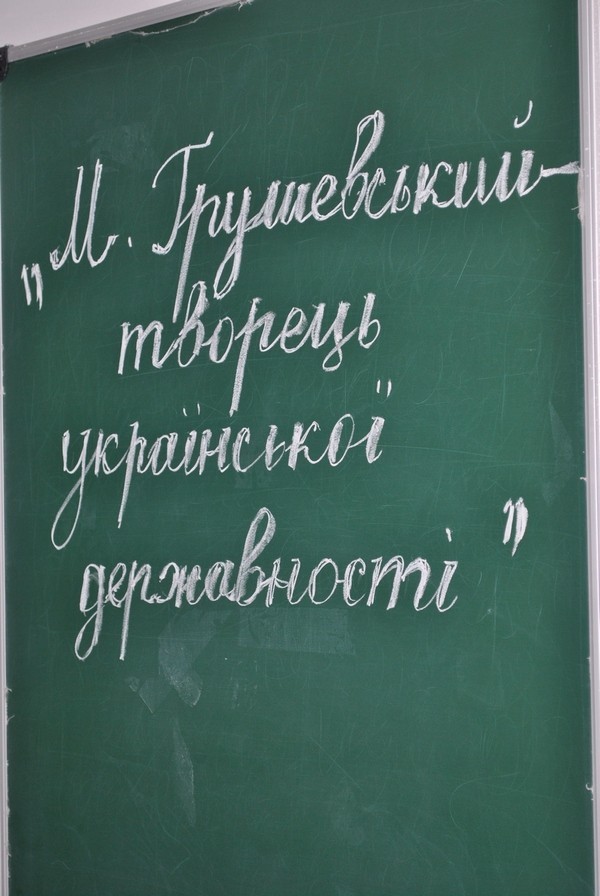 „М. Грушевський-
творець
української
державності”